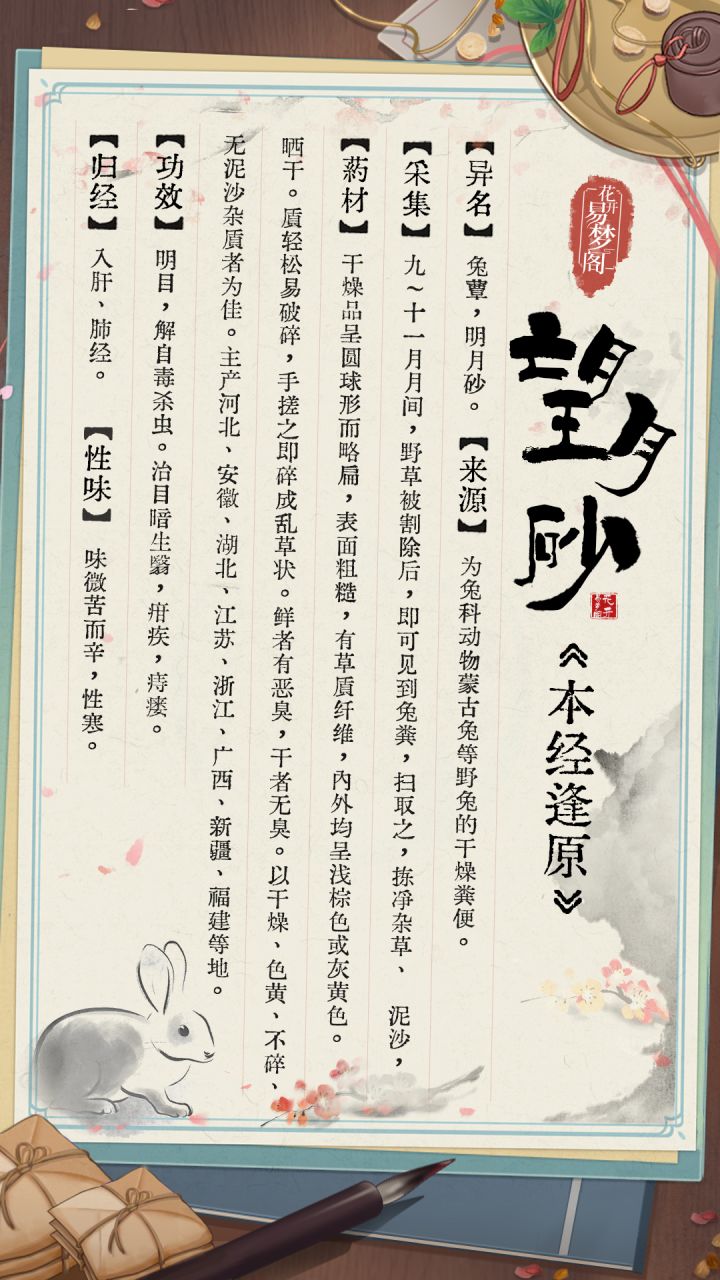 花开
易梦阁
望月砂
《本经逢原》
【异名】 兔蕈，明月砂。 【来源】 为兔科动物蒙古兔等野兔的干燥粪便。
【采集】 九～十一月月间，野草被割除后，即可见到兔粪，扫取之，拣净杂草、 泥沙，
【药材】 干燥品呈圆球形而略扁，表面粗糙，有草质纤维，内外均呈浅棕色或灰黄色。
晒干。质轻松易破碎，手搓之即碎成乱草状。鲜者有恶臭，干者无臭。以干燥、色黄、不碎、
无泥沙杂质者为佳。主产河北、安徽、湖北、江苏、浙江、广西、新疆、福建等地。
【功效】 明目，解自毒杀虫。治目暗生翳，疳疾，痔瘘。
【归经】 入肝、肺经。 【性味】 味微苦而辛，性寒。